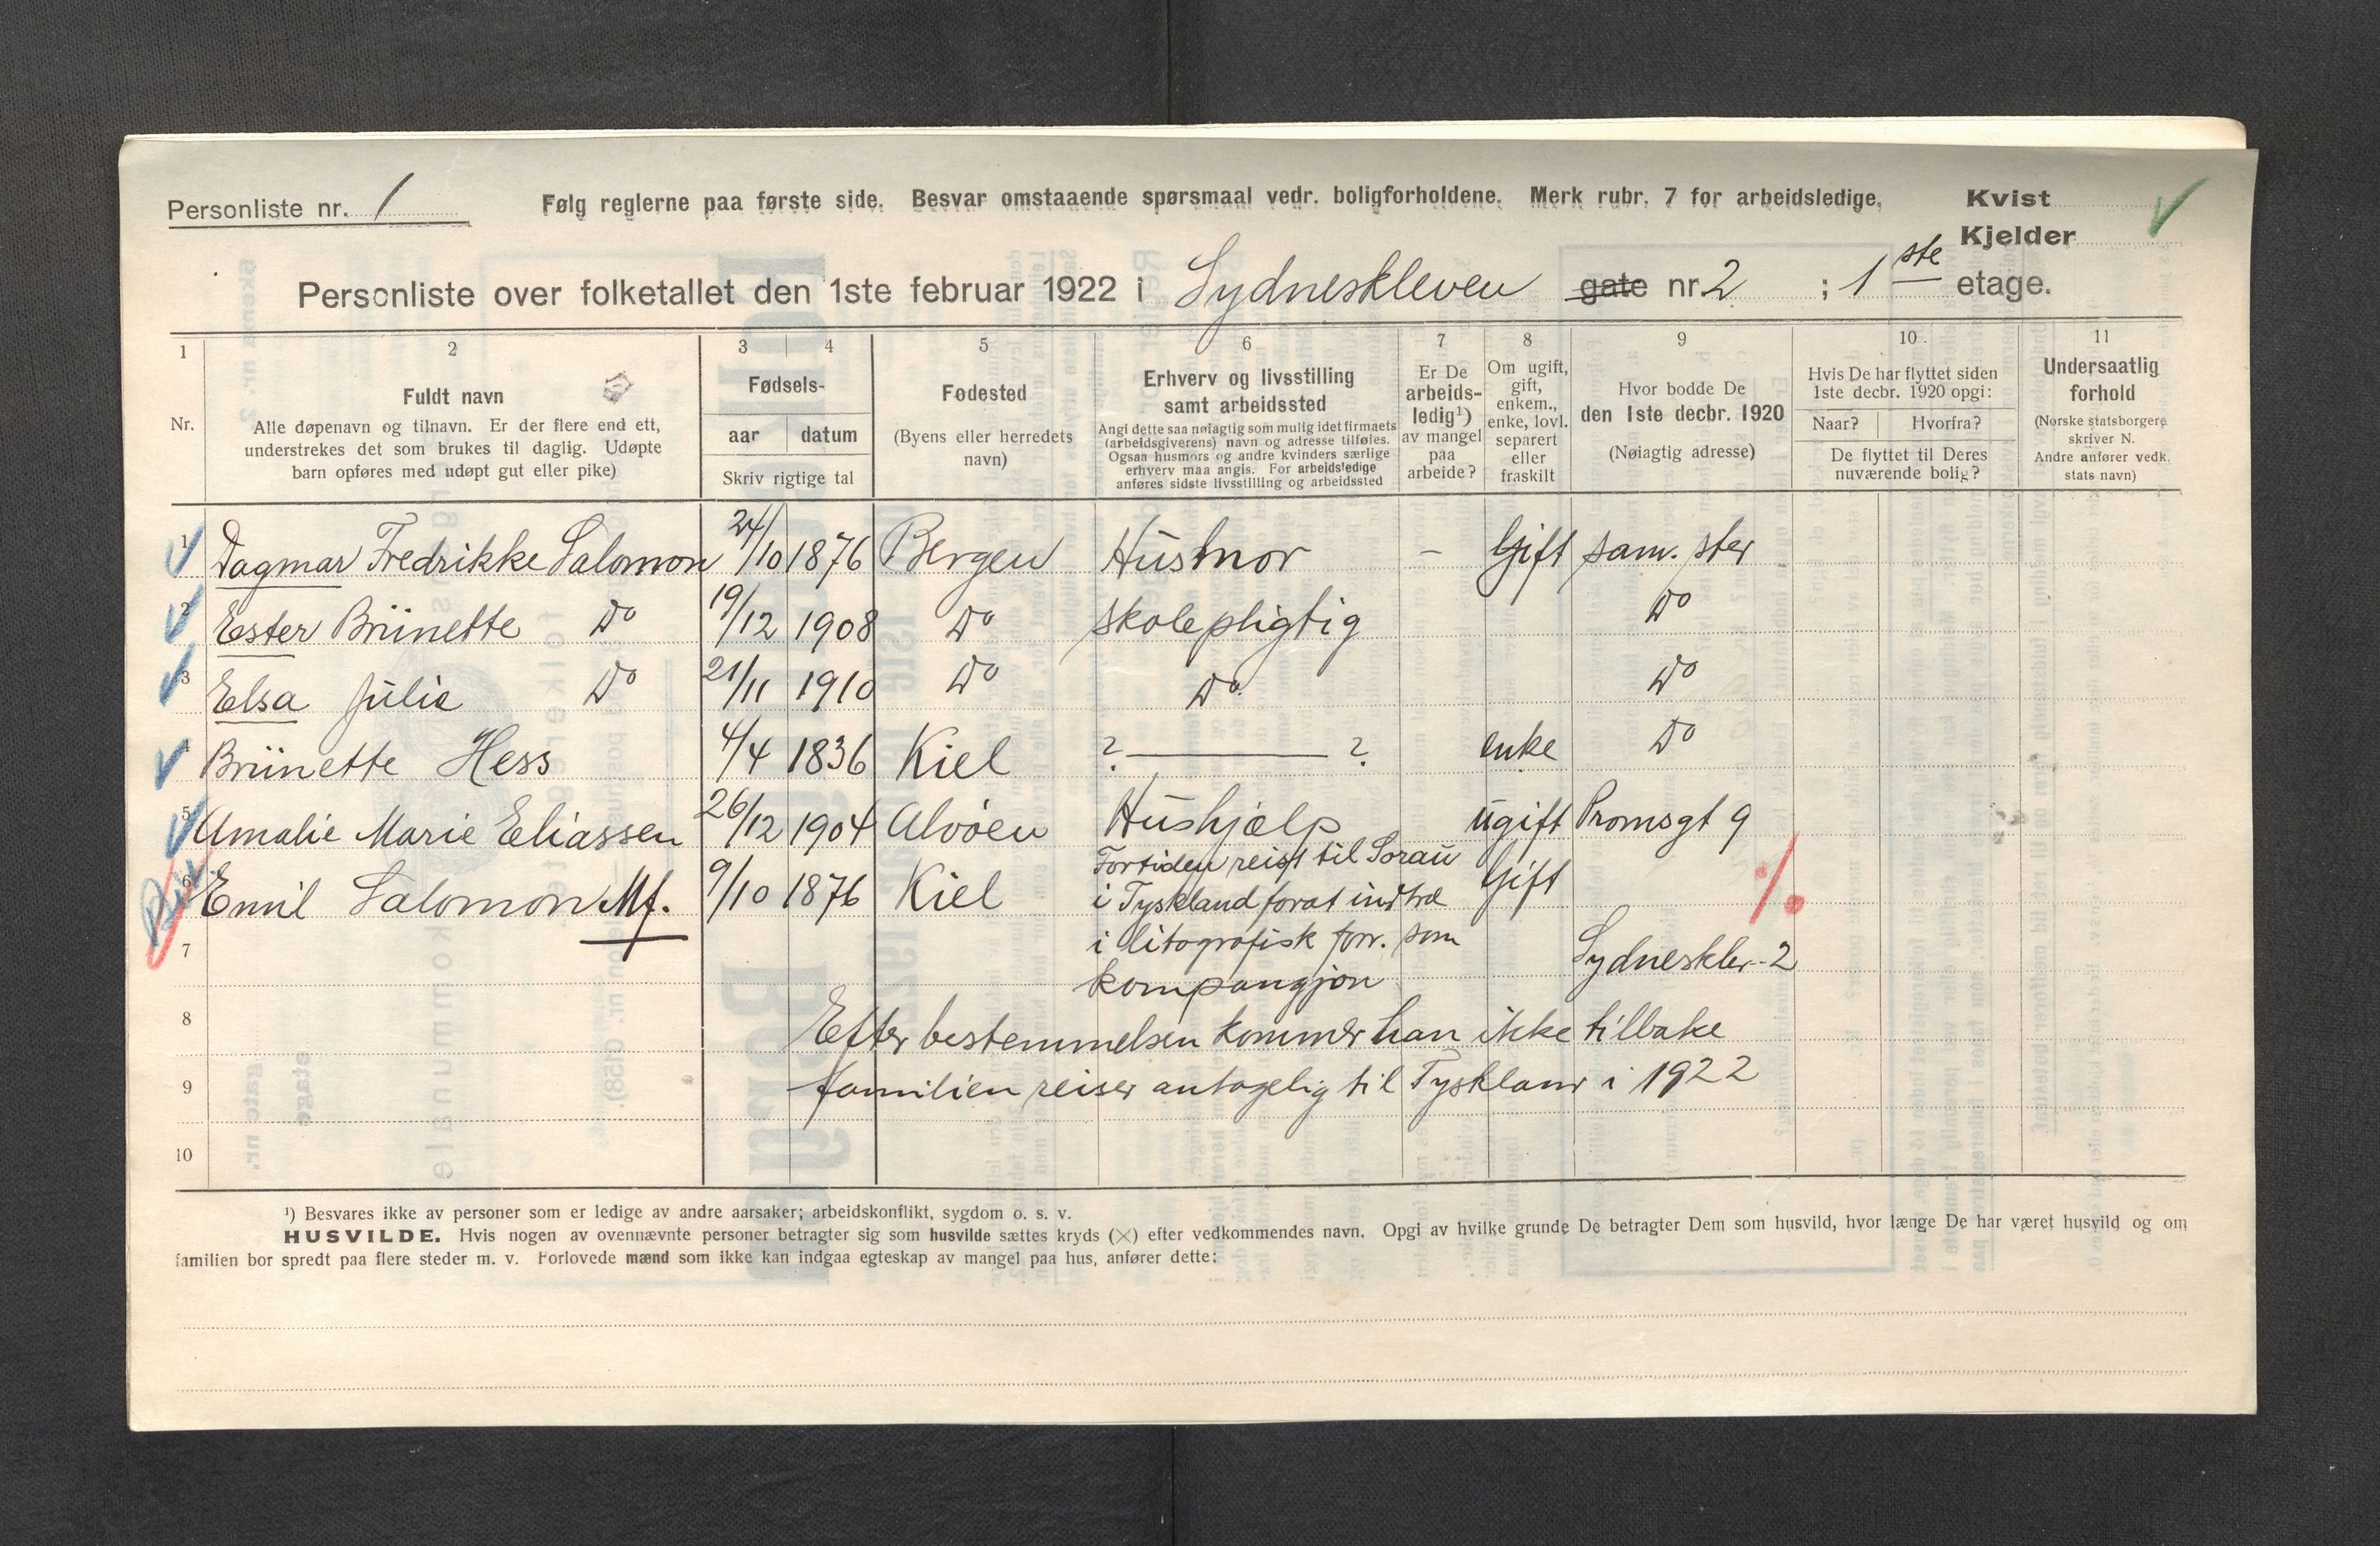 Personliste nr. 1
Følg reglerne paa første side. Besvar omstaaende spørsmaal vedr. boligforholdene. Merk rubr. 7 for arbeidsledige.
Kvist
Kjelder
Personliste over folketallet den 1ste februar 1922 i Sydneskleven gate nr. 2 ; 1ste etage.
1 2 3 4 5 6 7 8 9 10 11
Nr.
Fuldt navn
Alle døpenavn og tilnavn. Er der flere end ett,
understrekes det som brukes til daglig. Udøpte
barn opføres med udøpt gut eller pike)
Fødsels-
aar datum
Skriv rigtige tal
Fødested
(Byens eller herredets
navn)
Erhverv og livsstilling
samt arbeidssted
Angi dette saa nøiagtig som mulig idet firmaets
(arbeidsgiverens) navn og adresse tilføies.
Ogsaa husmors og andre kvinders særlige
erhverv maa angis. For arbeidsledige
anføres sidste livsstilling og arbeidssted
Er De
arbeids-
ledig¹)
av mangel
paa
arbeide?
Om ugift,
gift,
enkem.,
enke, lovl.
separert
eller
fraskilt
Hvor bodde De
den 1ste decbr. 1920
(Nøiagtig adresse)
Hvis De har flyttet siden
1ste decbr. 1920 opgi:
Naar? Hvorfra?
De flyttet til Deres
nuværende bolig?
Undersaatlig
forhold
(Norske statsborgere
skriver N.
Andre anfører vedk.
stats navn)
1 Dagmar Fredrikke Salomon 24/10 1876 Bergen Husmor – Gift sam. ster
2 Ester Brünette Do 19/12 1908 Do skolepligtig Do
3 Elsa Julie Do 21/11 1910 Do Do Do
4 Brünette Hess 4/4 1836 Kiel ? — ? enke Do
5 Amalie Marie Eliassen 26/12 1904 Alvøen Hushjælp ugift Promsgt 9
6 Emil Salomon Mf. 9/10 1876 Kiel Fortiden reist til Sorau Gift
i Tyskland forat indtræ
7 i litografisk forr. som Sydneskler 2
kompangjon
8 Efter bestemmelsen kommer han ikke tilbake
9 familien reiser antagelig til Tyskland i 1922
10
¹) Besvares ikke av personer som er ledige av andre aarsaker; arbeidskonflikt, sygdom o. s. v.
HUSVILDE. Hvis nogen av ovennævnte personer betragter sig som husvilde sættes kryds (×) efter vedkommendes navn. Opgi av hvilke grunde De betragter Dem som husvild, hvor længe De har været husvild og om
familien bor spredt paa flere steder m. v. Forlovede mænd som ikke kan indgaa egteskap av mangel paa hus, anfører dette: